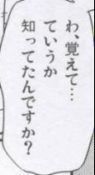 わ、覚えて…
ていうか
知ってたんですか？